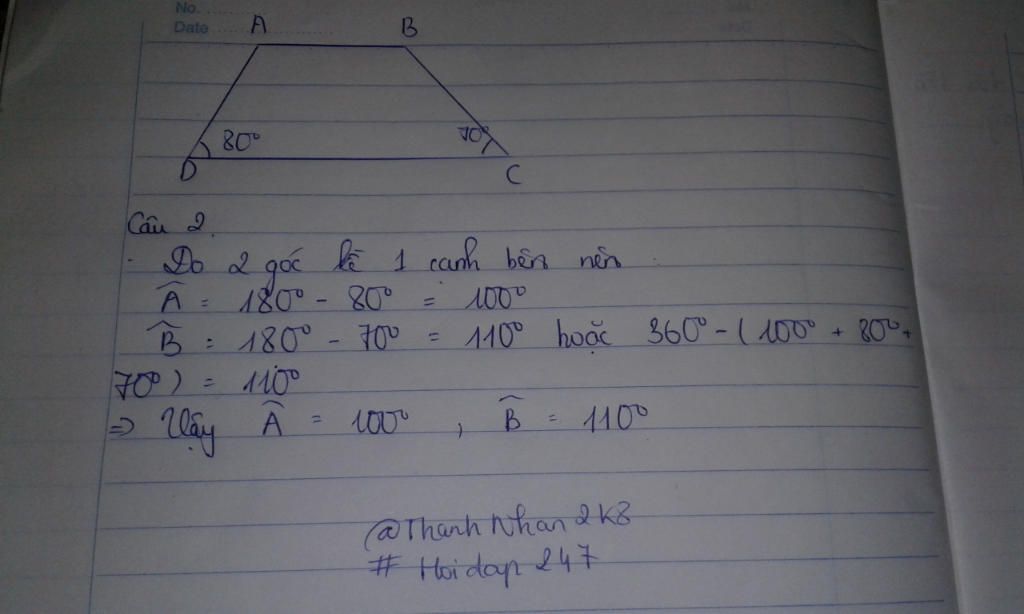 No. ..........
Date ..........
A B
80° 70°
D C
Câu 2.
- Do 2 góc kề 1 cạnh bên nên :
Â = 180° - 80° = 100°
B̂ = 180° - 70° = 110° hoặc 360° - ( 100° + 80° +
70° ) = 110°
⇒ Vậy Â = 100° , B̂ = 110°
@ThanhNhan2k8
# Hoidap 247